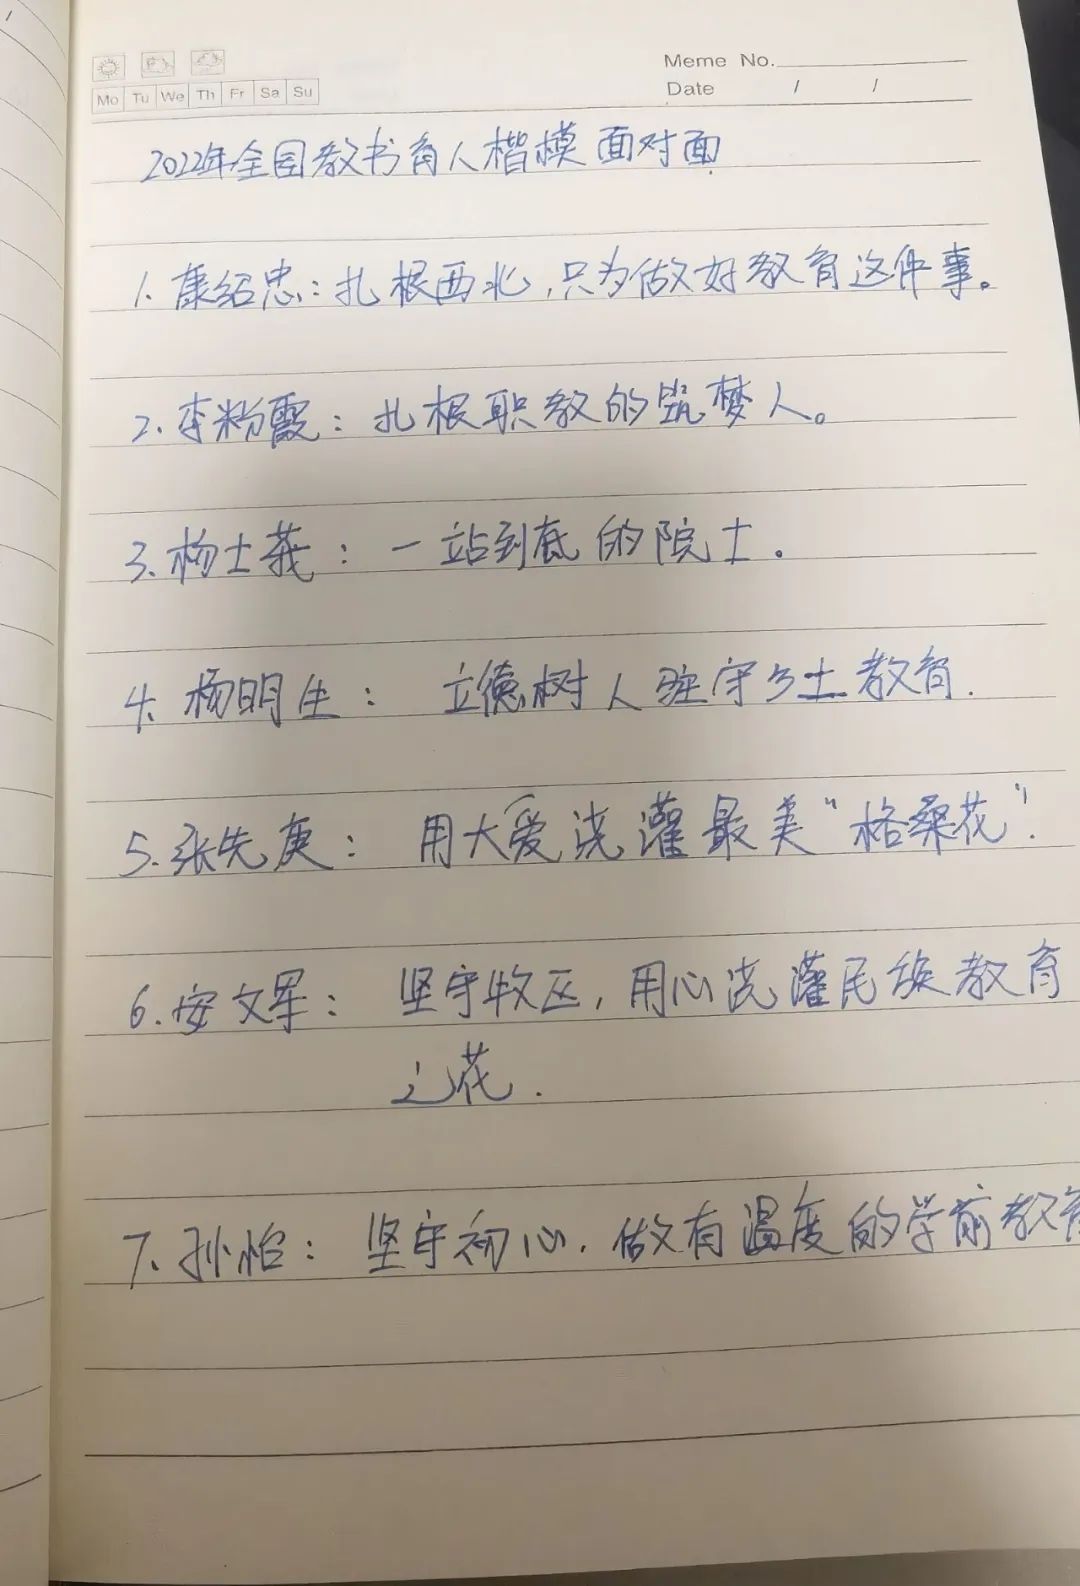 Meme No.
Date / /
Mo Tu We Th Fr Sa Su
2022年全国教书育人楷模面对面
1.康绍忠:扎根西北,只为做好教育这件事。
2.李粉霞:扎根职教的筑梦人。
3.杨士莪:一站到底的院士.
4.杨明生:立德树人驻守乡土教育.
5.张先庚:用大爱浇灌最美“格桑花”.
6.安文军:坚守牧区,用心浇灌民族教育
之花.
7.孙怡:坚守初心.做有温度的学前教育